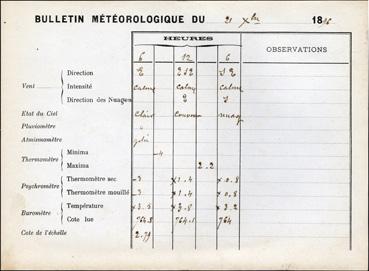 BULLETIN MÉTÉOROLOGIQUE DU 21 Xbre 1886
HEURES
6 12 6 OBSERVATIONS
Direction E S
Vent Intensité Calme Calme Calme
Direction des Nuages
Etat du Ciel Clair Couvert nuag
Pluviomètre
Atmismomètre gelé
Minima -4
Thermomètre
Maxima 2.2
Thermomètre sec -3 +1.4 +0.8
Psychromètre
Thermomètre mouillé -3 +1.4 +0.8
Température +3.8 +3.2
Baromètre
Cote lue 764.8 764.1 764
Cote de l'échelle 2.79